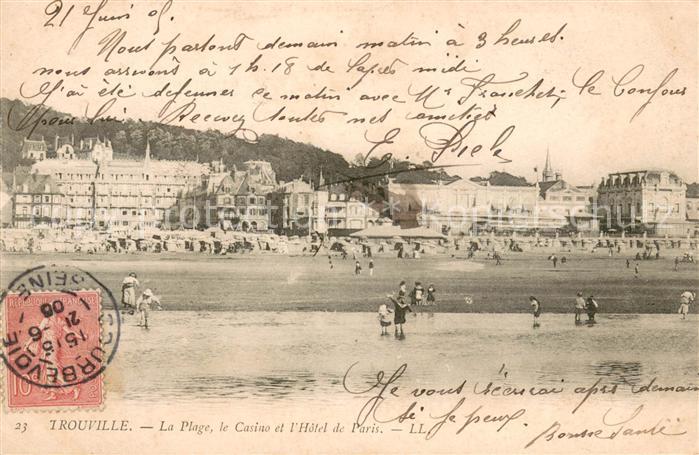 21 Juin 05
Nous partons demain matin à 3 heures.
nous arrivons à 1h.18 de l'après midi
J'ai été dejeuner ce matin avec Mr Franchet, je le Confour
pour lui Recevez toutes nos amitiés
Je vous écrirai après demain
si je peux
Bonne Santé
RÉPUBLIQUE FRANÇAISE
10c
COURBEVOIE
SEINE
15
21 -6
05
23 TROUVILLE. — La Plage, le Casino et l'Hôtel de Paris. — LL